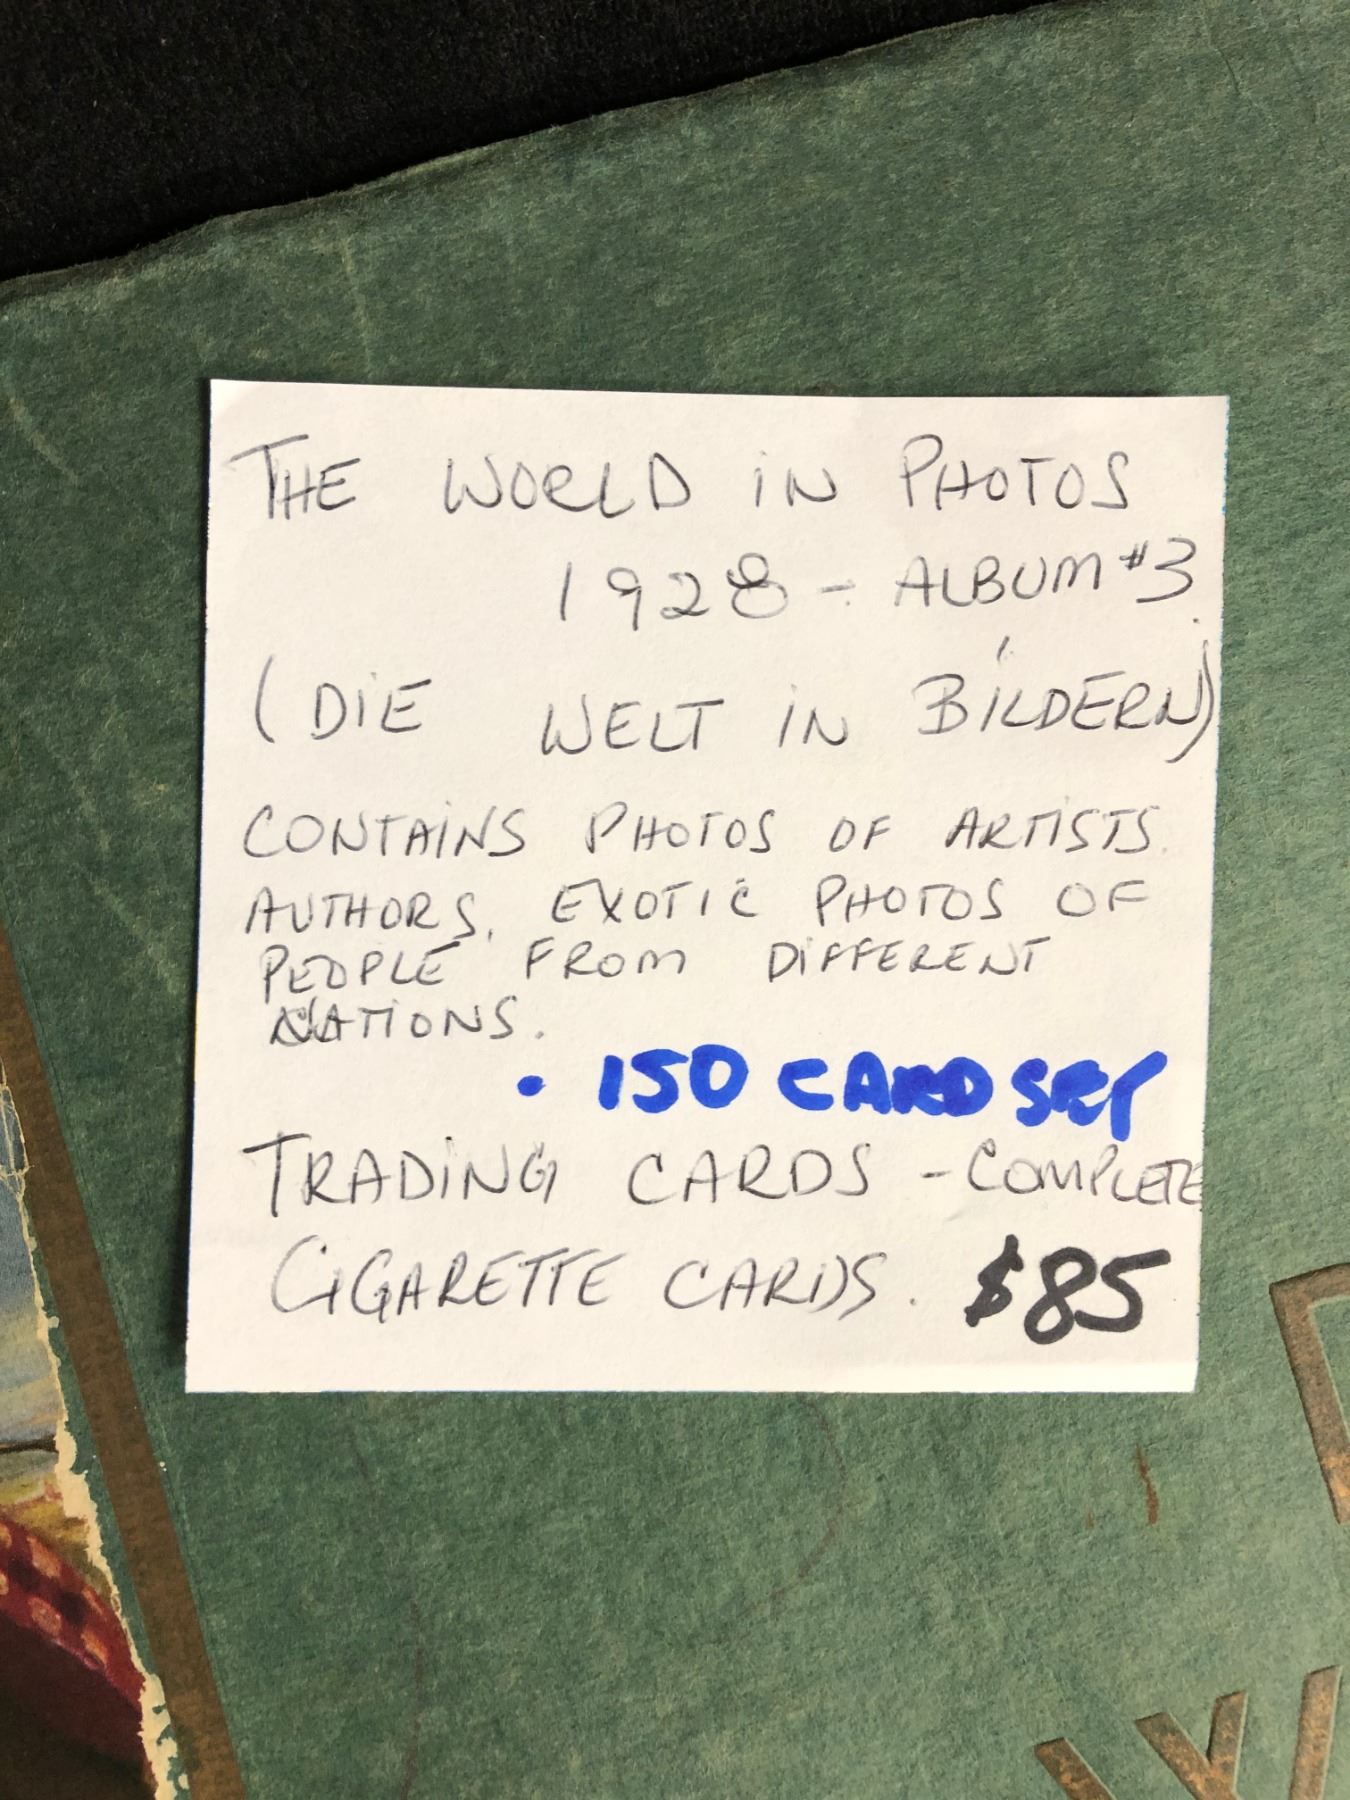 THE WORLD IN PHOTOS
1928 - ALBUM #3
(DIE WELT IN BILDERN)
CONTAINS PHOTOS OF ARTISTS.
AUTHORS. EXOTIC PHOTOS OF
PEOPLE FROM DIFFERENT
NATIONS.
• 150 CARD SET
TRADING CARDS - COMPLETE
CIGARETTE CARDS. $85